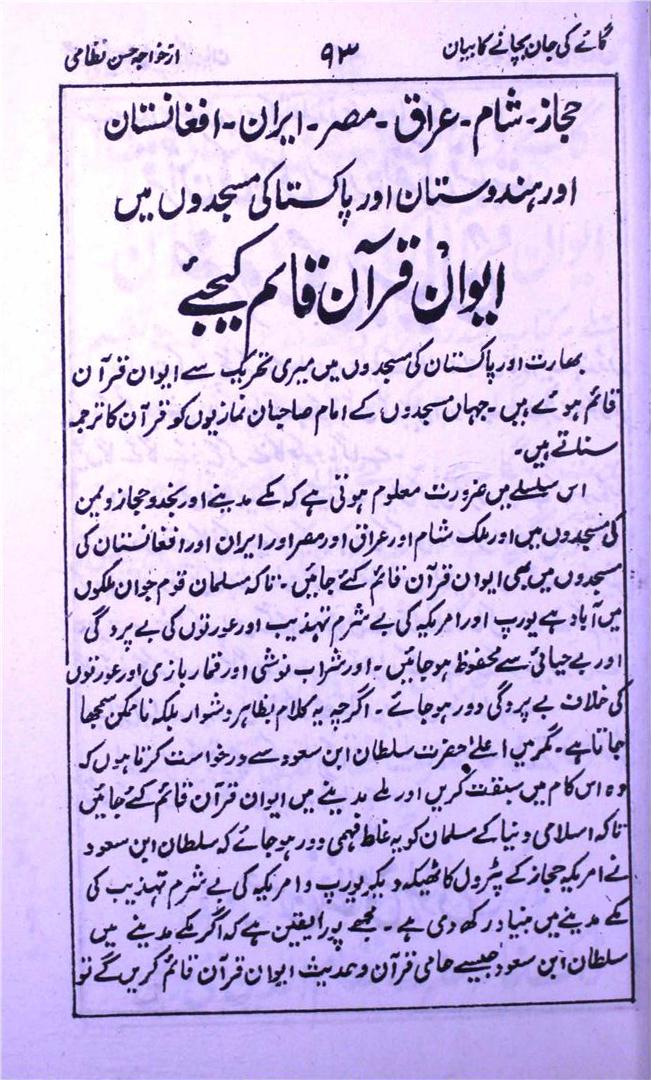 گائے کی جان بچانے کا بیان
۹۳
از خواجہ حسن نظامی
حجاز۔ شام۔ عراق۔ مصر۔ ایران۔ افغانستان
اور ہندوستان اور پاکستا کی مسجدوں میں
ایوان قرآن قائم کیجئے
بھارت اور پاکستان کی مسجدوں میں میری تحریک سے ایوان قرآن
قائم ہوئے ہیں۔ جہاں مسجدوں کے امام صاحبان نمازیوں کو قرآن کا ترجمہ
سناتے ہیں۔
اس سلسلے میں ضرورت معلوم ہوتی ہے کہ مکے مدینے اور نجد و حجاز و یمن
کی مسجدوں میں اور ملک شام اور عراق اور مصر اور ایران اور افغانستان کی
مسجدوں میں بھی ایوان قرآن قائم کئے جائیں۔ تاکہ مسلمان قوم جو ان ملکوں
میں آباد ہے یورپ اور امریکہ کی بے شرم تہذیب اور عورتوں کی بے پردگی
اور بے حیائی سے محفوظ ہو جائیں۔ اور شراب نوشی اور قمار بازی اور عورتوں
کی خلاف بے پردگی دور ہو جائے۔ اگرچہ یہ کلام بظاہر دشوار بلکہ ناممکن سمجھا
جاتا ہے۔ مگر میں اعلےٰ حضرت سلطان ابن سعود سے درخواست کرتا ہوں کہ
وہ اس کام میں سبقت کریں اور مکے مدینے میں ایوان قرآن قائم کئے جائیں
تاکہ اسلامی دنیا کے مسلمان کو یہ غلط فہمی دور ہو جائے کہ سلطان ابن سعود
نے امریکہ حجاز کے پٹرول کا ٹھیکہ دیکر یورپ و امریکہ کی بے شرم تہذیب کی
مکے مدینے میں بنیاد رکھ دی ہے۔ مجھے پورا یقین ہے کہ اگر مکے مدینے میں
سلطان ابن سعود جیسے حامی قرآن و حدیث ایوان قرآن قائم کریں گے تو